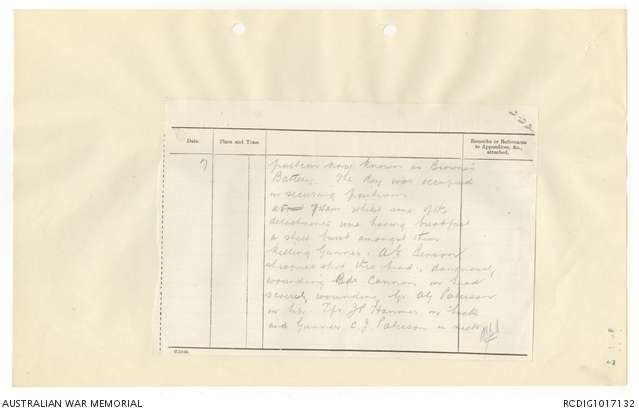 Date.
Place and Time.
Remarks or References
to Appendices, &c.,
attached.
7
position now known as Browns
Battery. The day was occupied
in securing positions
7 am whilst some of the
detachment was having breakfast
a shell burst amongst them
killing Gunner A. G. Benson
shot thro head, dangerously
wounding Bdr Cannon in head
severely wounding Gr A G Paterson
in hip. Tpr J H Hammer in back
and Gunner C J Paterson in neck
AUSTRALIAN WAR MEMORIAL
RCDIG1017132